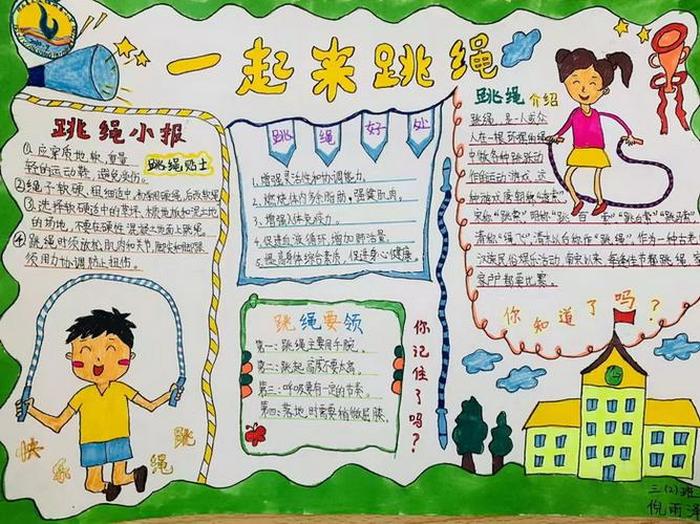 一起来跳绳
跳绳小报
①应穿质地软,重量
轻的运动鞋,避免受伤。
跳绳贴士
②绳子软硬、粗细适中,
③选择软硬适中的草坪、木质地板和泥土地
的场地,不要在硬性混凝土地面上跳绳。
④跳绳时须放松肌肉和关节,脚尖和脚跟
须用力协调,防止扭伤。
快乐跳绳
跳绳好处
1.增强灵活性和协调能力。
2.燃烧体内多余脂肪,强健肌肉。
3.增强人体免疫力。
4.促进血液循环,增加肺活量。
5.提高身体综合素质,促进身心健康。
跳绳要领
第一:跳绳主要用手腕。
第二:跳起高度不要太高。
第三:呼吸要有一定的节奏。
第四:落地时需要稍微屈膝。
你记住了吗?
跳绳介绍
跳绳,是一人或众
人在一根环摆的绳
中做各种跳跃动
作的运动游戏。这
种游戏唐朝称“透索”
宋称“跳索”明称“跳百索”“跳白索”“跳
清称“绳飞”清末以后称作“跳绳”。作为一种古老
汉族民俗娱乐活动,南宋以来,每逢佳节都跳绳
家户户都要比赛。
你知道了吗?
三(2)班
倪雨